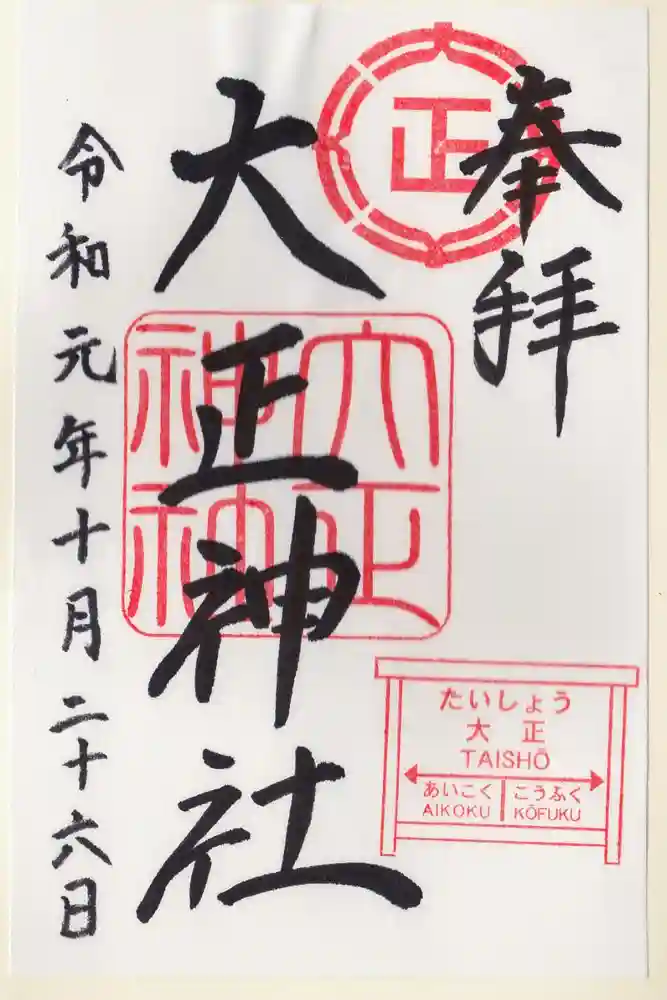 奉拝
正
大正神社
大正
令和元年十月二十六日
たいしょう
大正
TAISHŌ
あいこく こうふく
AIKOKU KŌFUKU